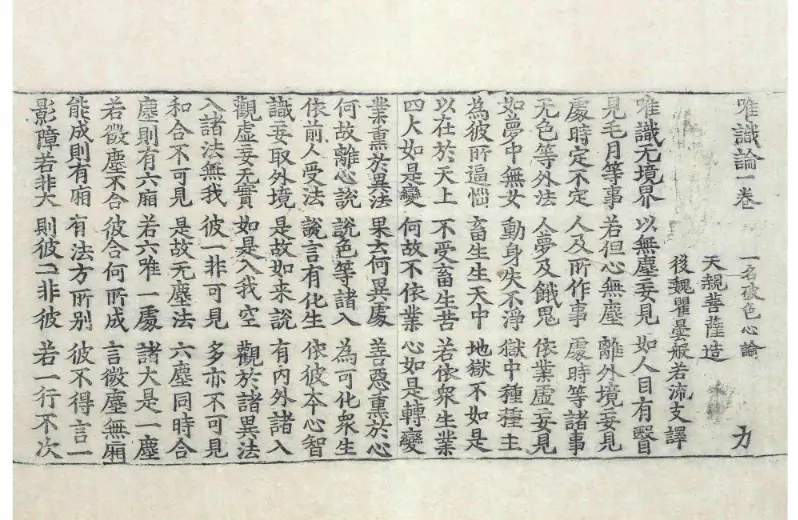 唯識論一卷 一名破色心論 力
天親菩薩造
後魏瞿曇般若流支譯
唯識无境界 以無塵妄見 如人目有瞖
見毛月等事 若但心無塵 離外境妄見
處時定不定 人及所作事 處時等諸事
无色等外法 人夢及餓鬼 依業虛妄見
如夢中無女 動身失不淨 獄中種種主
為彼所逼惱 畜生生天中 地獄不如是
以在於天上 不受畜生苦 若依衆生業
四大如是變 何故不依業 心如是轉變
業熏於異法 果云何異處 善惡熏於心
何故離心說 說色等諸入 為可化衆生
依前人受法 說言有化生 依彼夲心智
識妄取外境 是故如来說 有內外諸入
觀虛妄无實 如是入我空 觀於諸異法
入諸法無我 彼一非可見 多亦不可見
和合不可見 是故无塵法 六塵同時合
塵則有六廂 若六唯一處 諸大是一塵
若微塵不合 彼合何所成 言微塵無廂
能成則有廂 有法方所別 彼不得言一
影障若非大 則彼二非彼 若一行不次